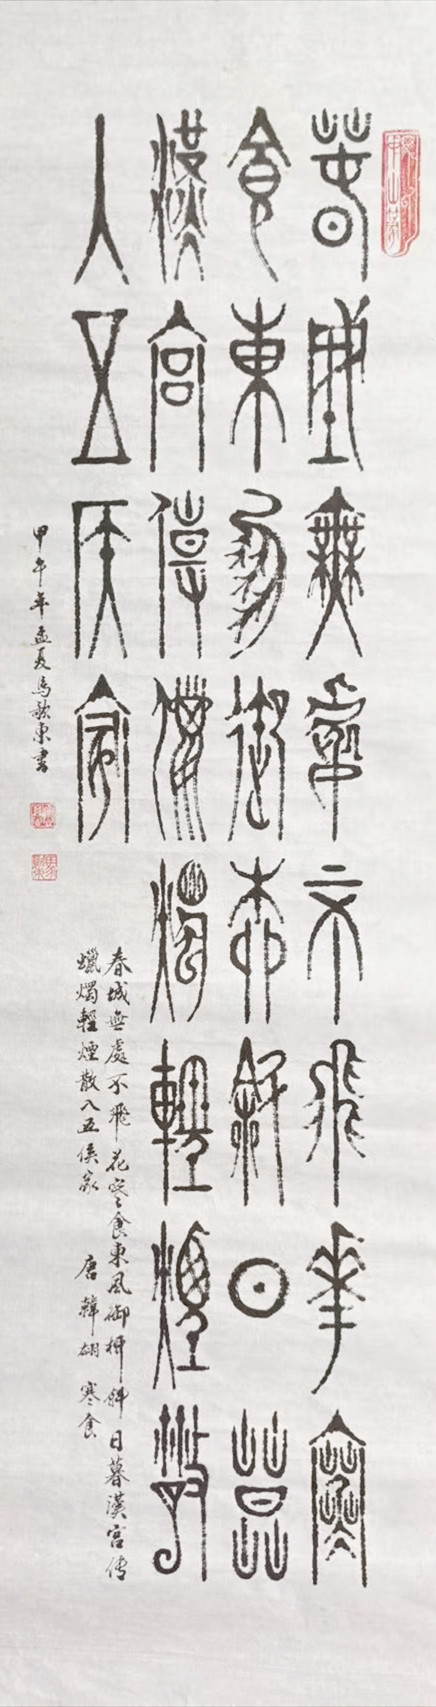 春城無處不飛華寒
食東風御柳斜日暮
漢宮傳蠟燭輕煙散
入五侯家
春城無處不飛花寒食東風御柳斜日暮漢宮传
蠟燭輕煙散入五侯家 唐 韓翃 寒食
甲午年孟夏馬歌東書